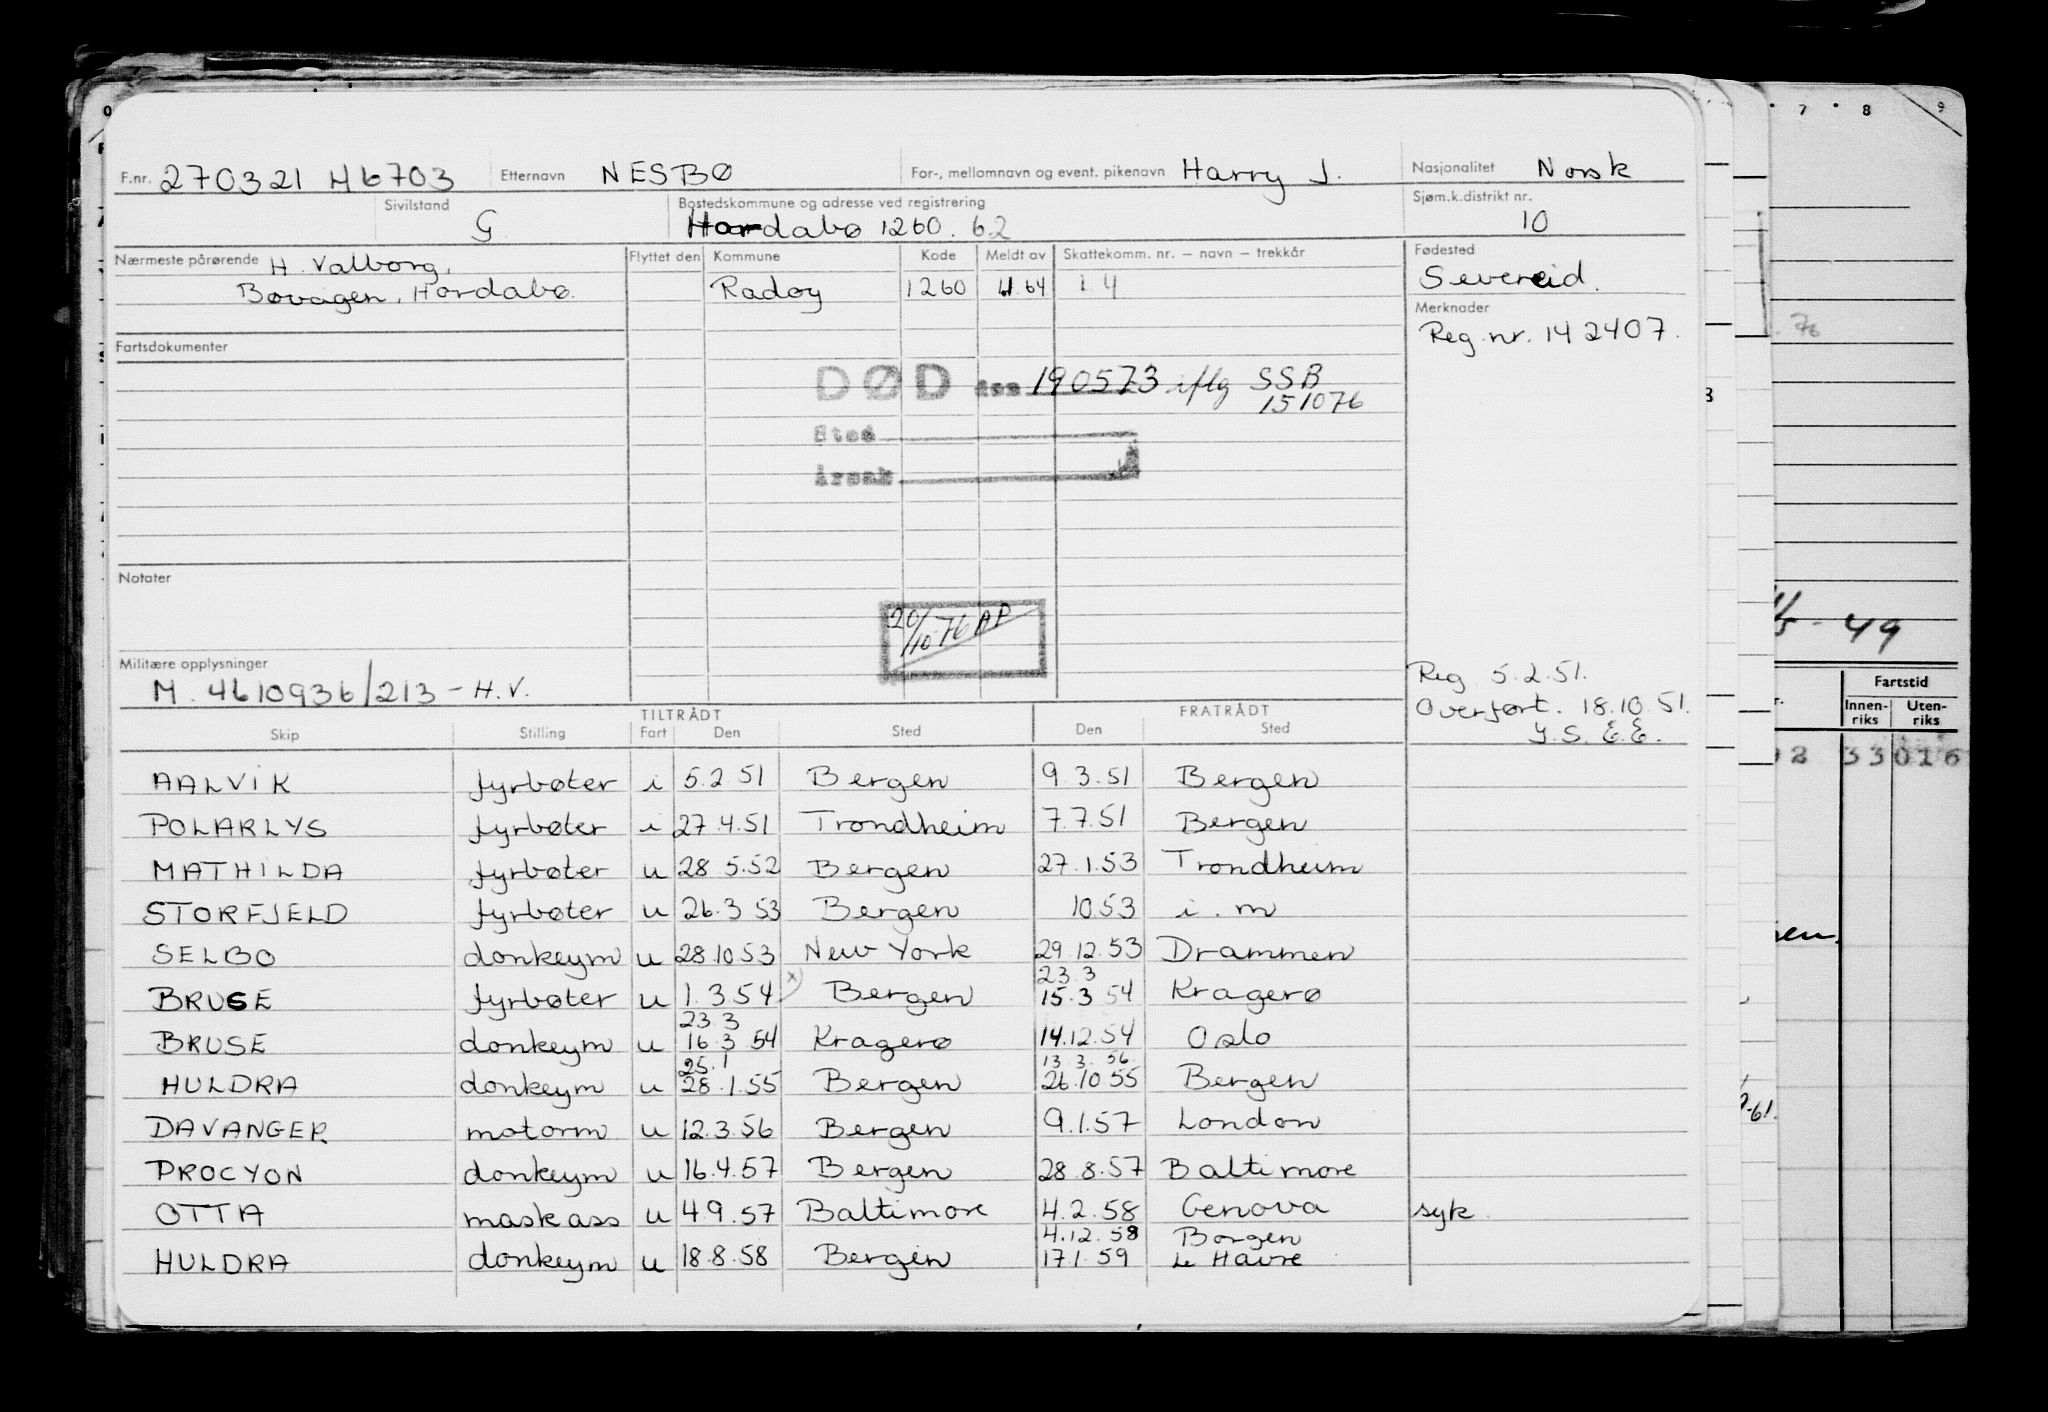 F.nr. 270321 46703 Etternavn NESBØ For-, mellomnavn og event. pikenavn Harry J. Nasjonalitet Norsk
Sivilstand G Bostedskommune og adresse ved registrering Hordabø 1260. 62 Sjøm.k.distrikt nr. 10
Nærmeste pårørende H. Valborg, Flyttet den Kommune Kode Meldt av Skattekomm. nr. – navn – trekkår Fødested
Bøvågen, Hordabø. Radøy 1260 4.64 i 4 Severeid.
Merknader
Fartsdokumenter Reg.nr. 142407.
DØD den 190573 iflg SSB
151076
Sted
Årsak
Notater
20/10-76 AP
Militære opplysninger
M. 4610936/213 - H.V.
Reg 5.2.51.
Overført. 18.10.51.
TILTRÅDT FRATRÅDT
Skip Stilling Fart Den Sted Den Sted
AALVIK fyrbøter i 5.2.51 Bergen 9.3.51 Bergen
POLARLYS fyrbøter i 27.4.51 Trondheim 7.7.51 Bergen
MATHILDA fyrbøter u 28 5.52 Bergen 27.1.53 Trondheim
STORFJELD fyrbøter u 26.3 53 Bergen 10.53 i.m
SELBO donkeym u 28.10 53 New York 29.12.53 Drammen
23.3
BRUSE fyrbøter u 1.3.54 x) Bergen 15.3 54 Kragerø
23.3
BRUSE donkeym u 16.3 54 Kragerø 14.12.54 Oslo
25.1 13.3.56.
HULDRA donkeym u 28.1.55 Bergen 26.10 55 Bergen
DAVANGER motorm u 12.3.56 Bergen 9.1.57 London
PROCYON donkeym u 16.4.57 Bergen 28.8.57 Baltimore
OTTA mask ass u 4.9.57 Baltimore 4.2.58 Genova syk.
4.12.58 Borgen
HULDRA donkeym u 18.8.58 Bergen 17.1.59 Le Havre
7 8 9
76
49
Fartstid
Innen-
riks
Uten-
riks
33 016